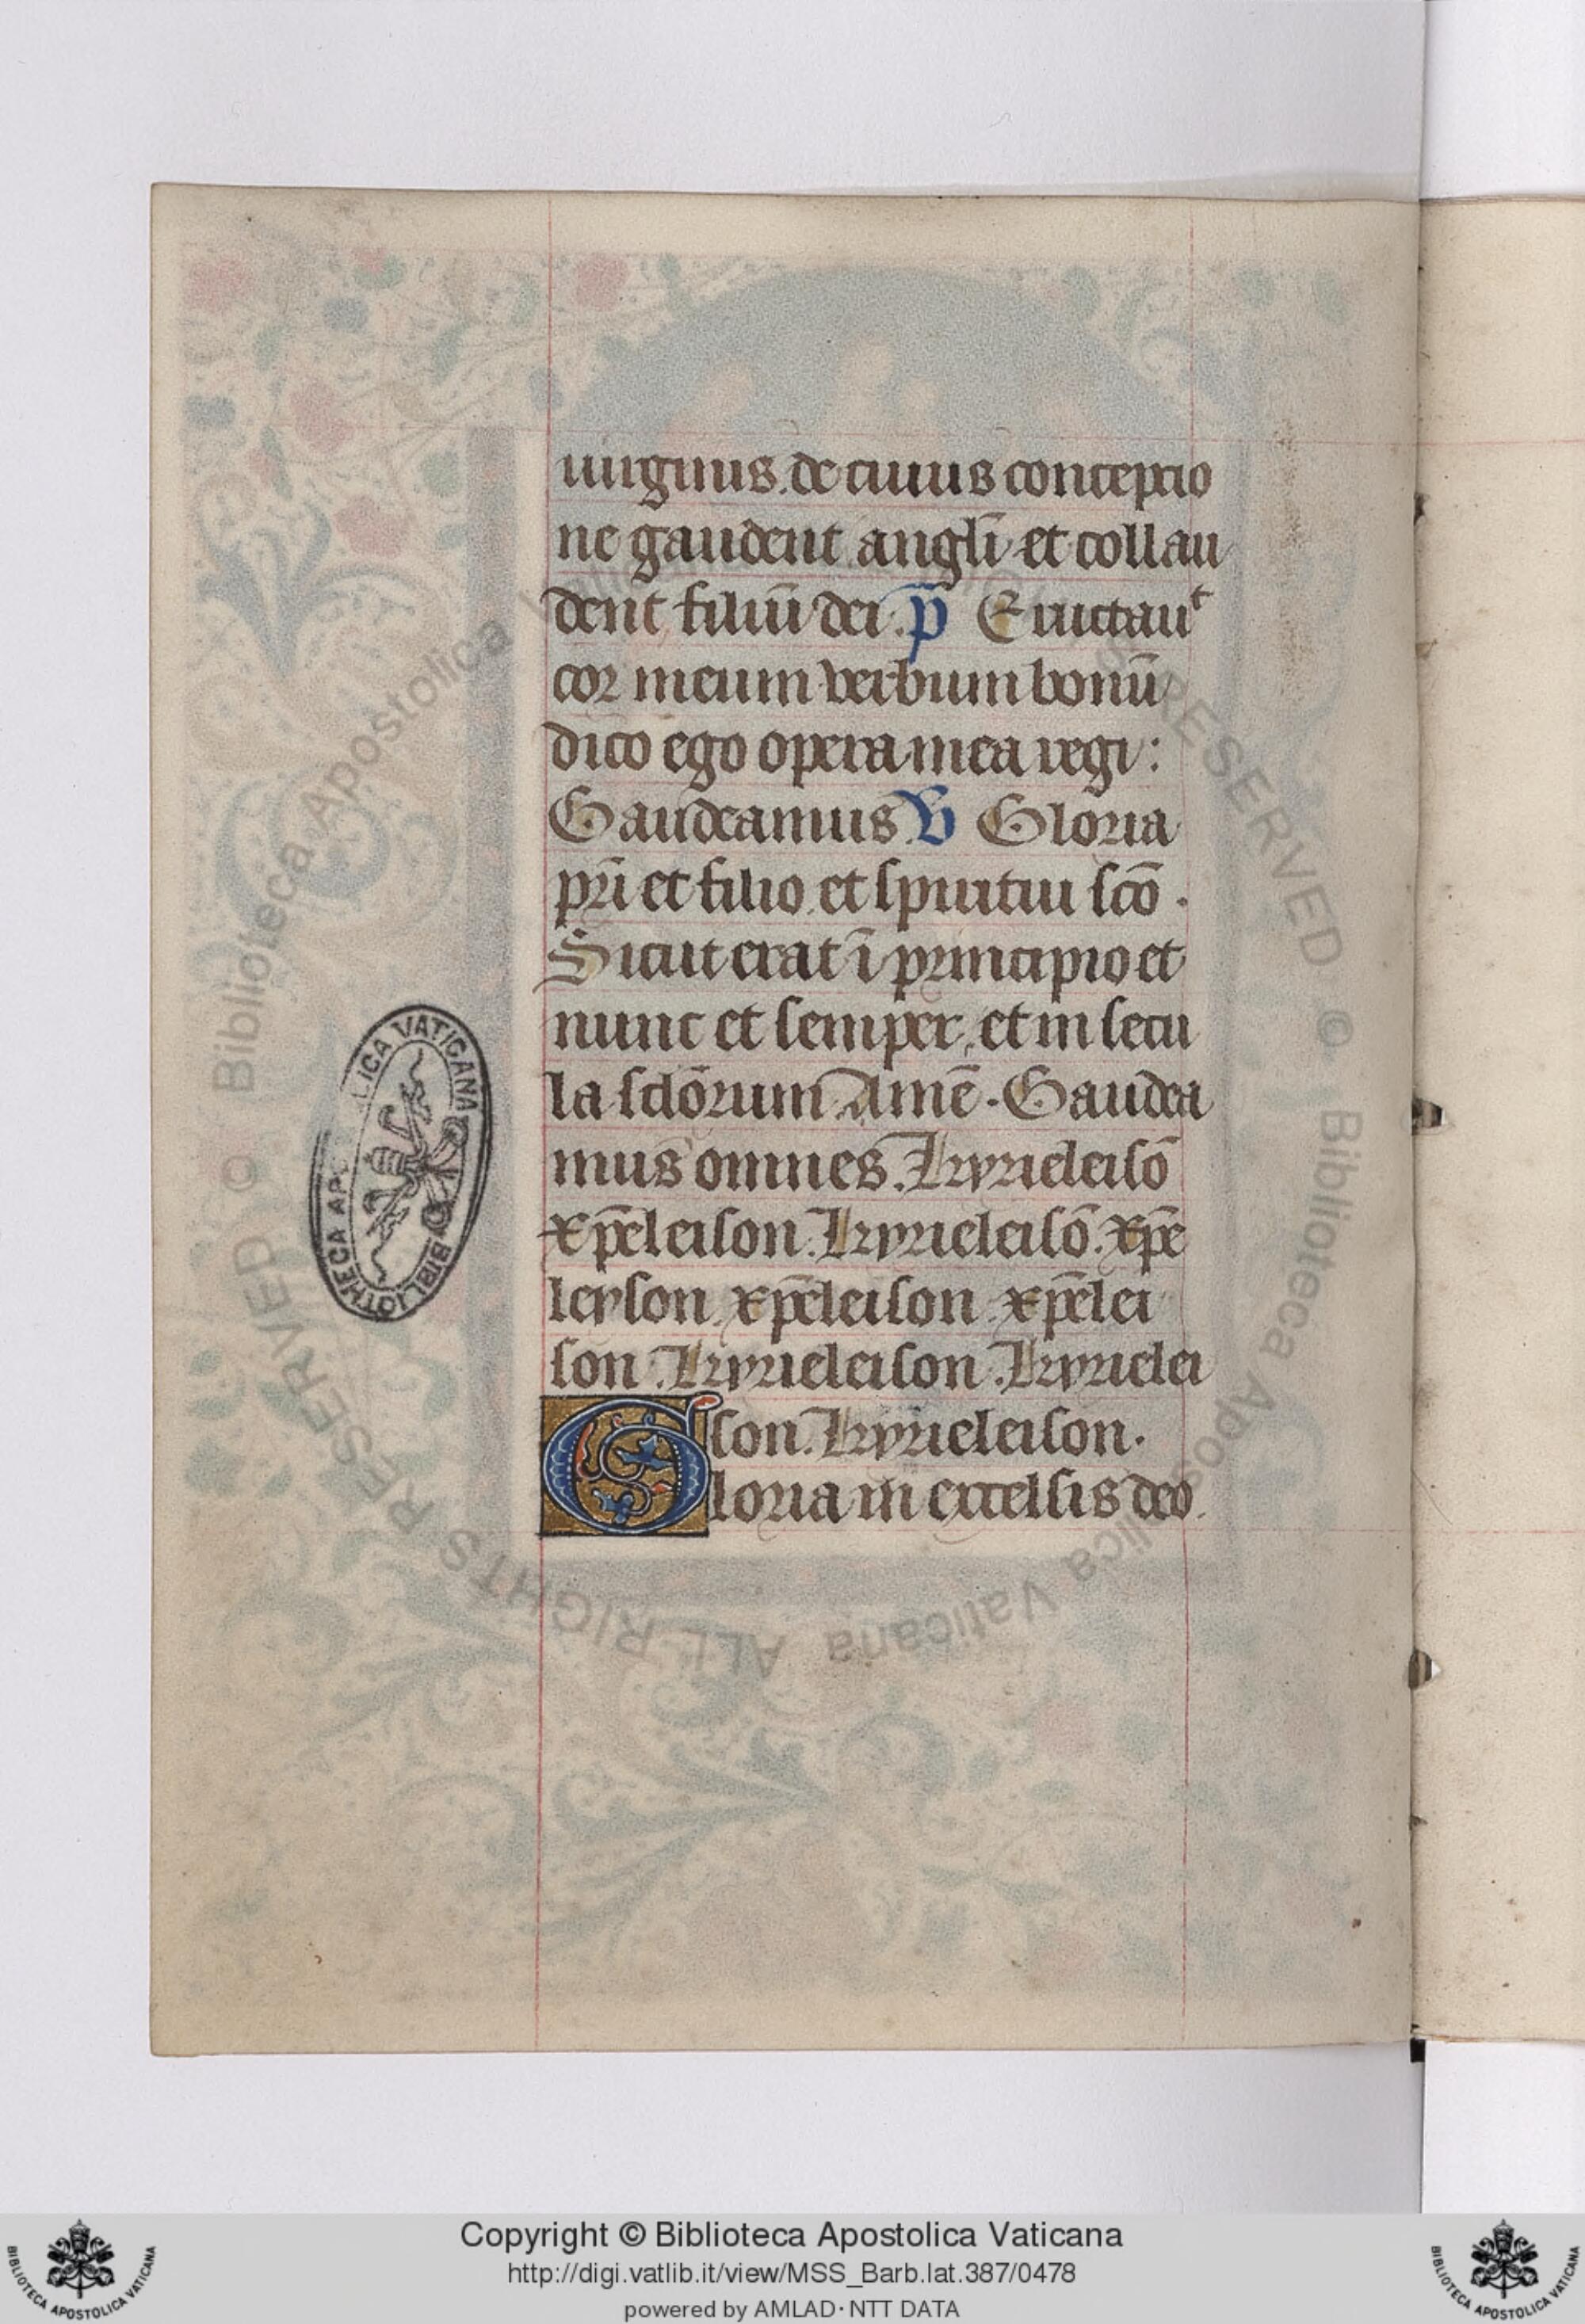 uirginis. de cuius conceptio
ne gaudent angl̄i et collau
dent filiū dei. p̄ Eructauᵗ
cor meum verbum bonū
dico ego opera mea regi:
Gaudeamus. V Gloria
pr̄i et filio et spiritui sc̄o.
Sicut erat ī principio et
nunc et semper, et in secu
la sc̄lorum Amē. Gaudea
mus omnes. Kyrieleisō
xp̄eleison. Kyrieleisō. xp̄e
leyson. xp̄eleison. xp̄elei
son. Kyrieleison. Kyrielei
son. Kyrieleison.
Gloria in excelsis deo.
BIBLIOTHECA APOSTOLICA VATICANA
© Biblioteca Apostolica Vaticana ALL RIGHTS RESERVED
Copyright © Biblioteca Apostolica Vaticana
http://digi.vatlib.it/view/MSS_Barb.lat.387/0478
powered by AMLAD · NTT DATA
BIBLIOTECA APOSTOLICA VATICANA
BIBLIOTECA APOSTOLICA VATICANA